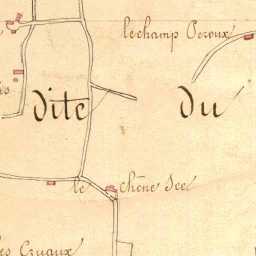 le champ Peroux
dite du
le Chêne Sec
les Cruaux